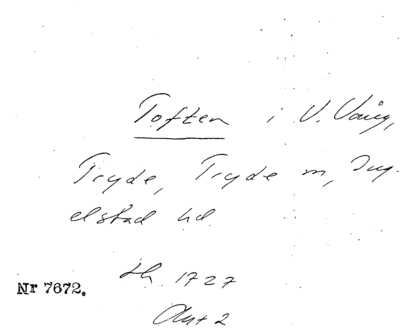 Toften i V. Vång,
Tryde, Tryde m, Ing-
elstad hd.
Lh. 1727
Nr 7672.
Akt 2